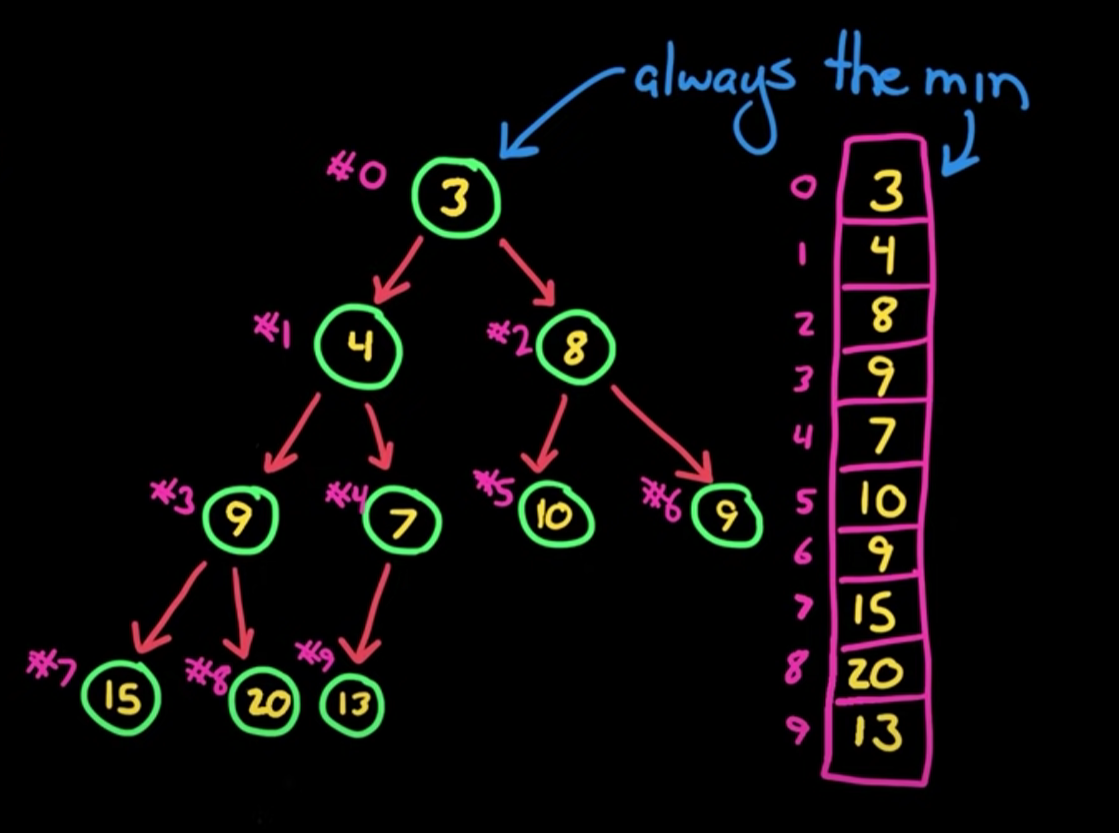 always the min
#0 3
#1 4
#2 8
#3 9
#4 7
#5 10
#6 9
#7 15
#8 20
#9 13
0 3
1 4
2 8
3 9
4 7
5 10
6 9
7 15
8 20
9 13